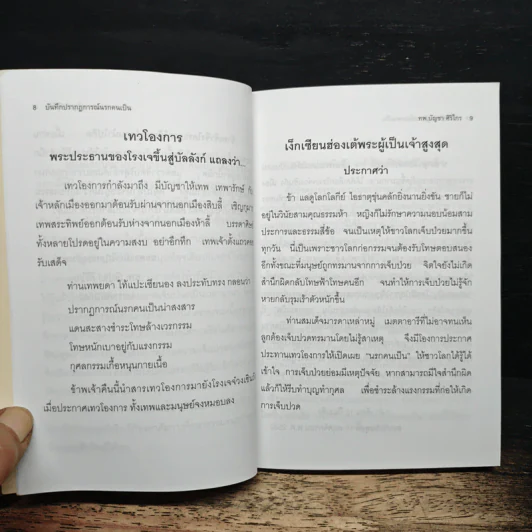 8 บันทึกปรากฏการณ์นรกคนเป็น
เทวโองการ
พระประธานของโรงเจขึ้นสู่บัลลังก์ แถลงว่า...
เทวโองการกำลังมาถึง มีบัญชาให้เทพ เทพารักษ์
เจ้าหลักเมืองออกมาต้อนรับผ่านจากนอกเมืองสิบลี้
เทพสระทิพย์ออกต้อนรับห่างจากนอกเมืองห้าลี้ บรรดา
ทั้งหลายโปรดอยู่ในความสงบ อย่าอึกทึก เทพเจ้าตั้งแถว
รับเสด็จ
ท่านเทพยดา ไท้แปะเซียนอง ลงประทับทรง กลอนว่า
ปรากฏการณ์นรกคนเป็นน่าสงสาร
แดนสะสางชำระโทษล้างเวรกรรม
โทษหนักเบาอยู่กับแรงกรรม
กุศลกรรมเกื้อหนุนกายเนื้อ
ข้าพเจ้าคืนนี้นำสารเทวโองการมายังโรงเจ
เมื่อประกาศเทวโองการ ทั้งเทพและมนุษย์จงหมอบลง
ทพ.บัญชา ศิริไกร 9
เง็กเซียนฮ่องเต้พระผู้เป็นเจ้าสูงสุด
ประกาศว่า
ข้า แลดูโลกโลกีย์ โอธาตุขุ่นคลักยิ่งนานยิ่งข้น ชายก็ไม่
อยู่ในวินัยสามคุณธรรมห้า หญิงก็ไม่รักษาความนอบน้อมสาม
ประการและอรรมสี่ข้อ จนเป็นเหตุให้ชาวโลกเจ็บป่วยมากขึ้น
ทุกวัน นี่เป็นเพราะชาวโลกก่อกรรมจนต้องรับโทษตอบสนอง
อีกทั้งขณะที่มนุษย์ถูกทรมานจากการเจ็บป่วย จิตใจยังไม่เกิด
สำนึกผิดกลับโทษฟ้าโทษคนอีก จนทำให้การเจ็บป่วยไม่รู้จัก
หายกลับรุมเร้าตัวหนักขึ้น
ท่านสมเด็จมารดาเหล่าหมู่ เมตตาอารีที่ไม่อาจทนเห็น
ลูกต้องเจ็บปวดทรมานโดยไม่รู้สาเหตุ จึงมีโองการประกาศ
ประทานเทวโองการให้เปิดเผย "นรกคนเป็น" ให้ชาวโลกได้รู้ได้
เข้าใจ การเจ็บป่วยย่อมมีเหตุปัจจัย หากสามารถมีใจสำนึกผิด
แล้วก็ให้รีบทำบุญทำกุศล เพื่อชำระล้างแรงกรรมที่ก่อให้เกิด
การเจ็บปวด